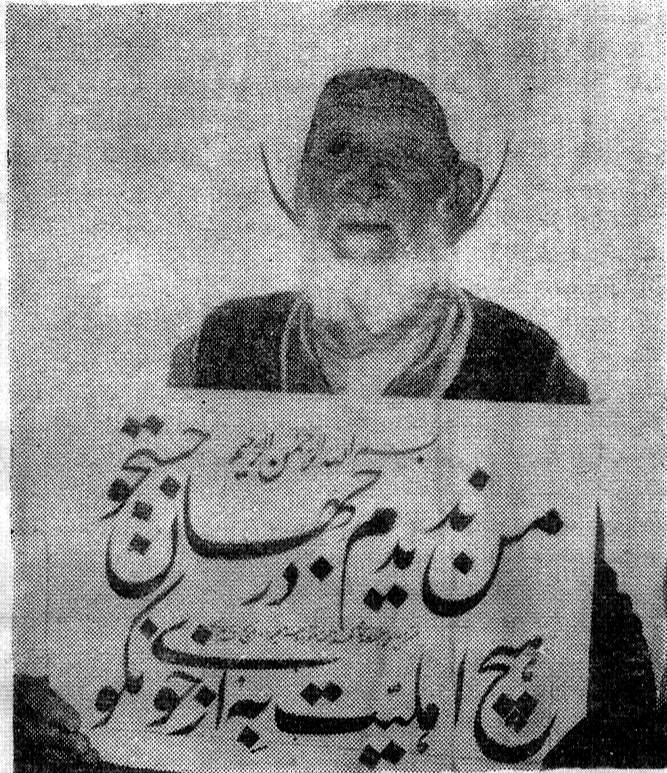 بسم الله الرحمن الرحیم
من ندیدم در جهان جستجو
هیچ اهلیّت بِه از خوی نکو